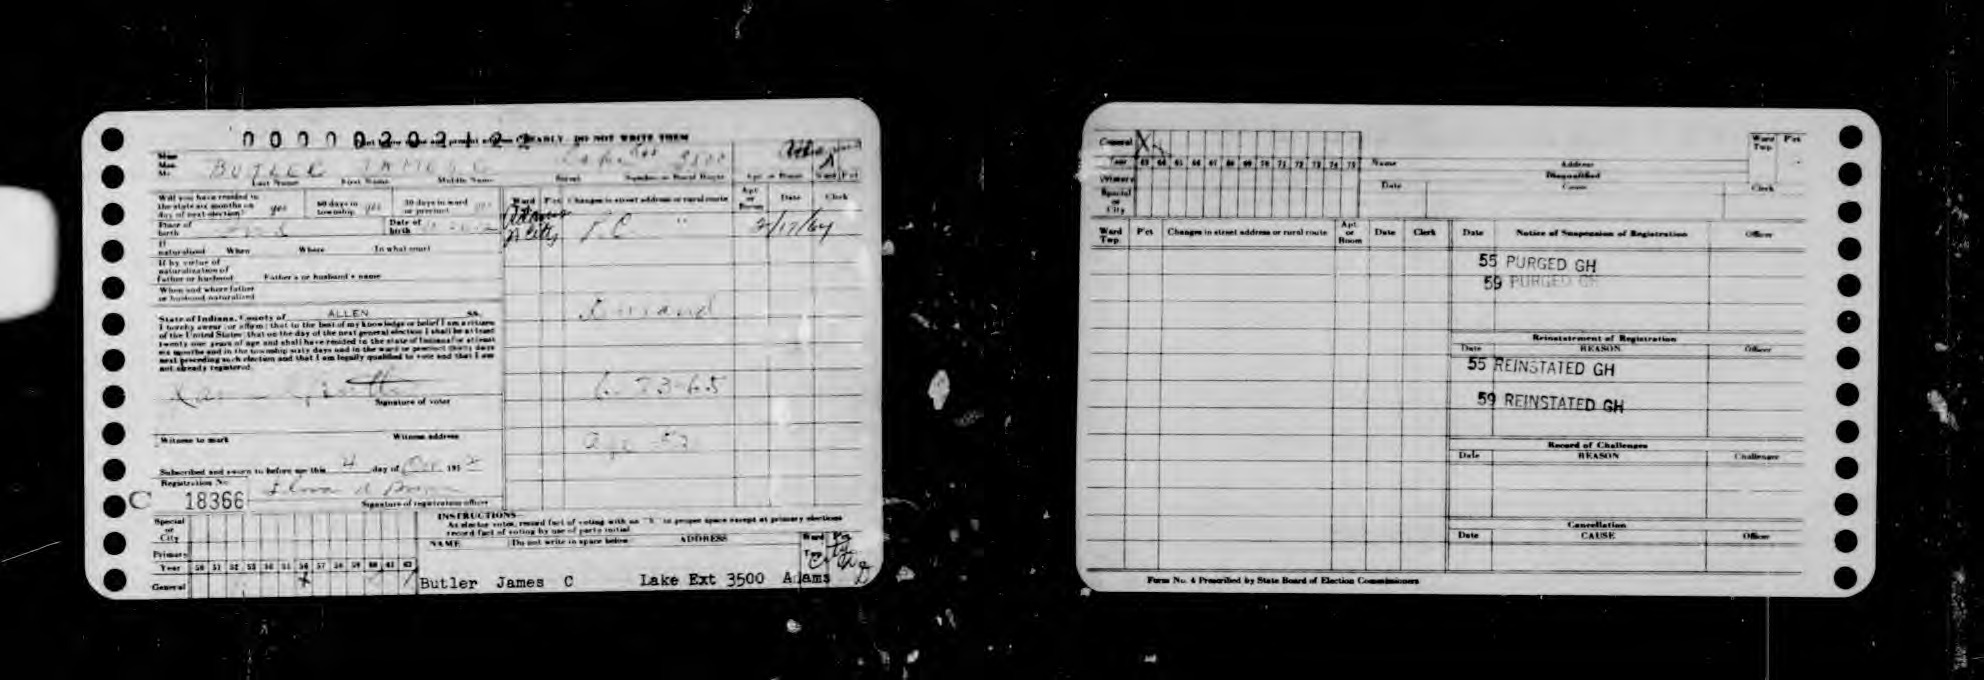 0 0 0 0 0 2 0 2 1 2 2
CLEARLY DO NOT WRITE THEM
BUTLER JAMES C 3500
Last Name First Name Middle Name Street Number or Rural Route Apt. or Room Ward Pct
Will you have resided in the state six months on day of next election? yes 60 days in township yes 30 days in ward or precinct yes
Ward Pct Changes in street address or rural route Apt or Room Date Clerk
Place of birth Date of birth
Adams N City P.C. " 2/17/64
If naturalized When Where In what court
If by virtue of naturalization of father or husband Father's or husband's name
When and where father or husband naturalized
State of Indiana, County of ALLEN SS.
I hereby swear (or affirm) that to the best of my knowledge or belief I am a citizen
of the United States; that on the day of the next general election I shall be at least
twenty one years of age and shall have resided in the state of Indiana for at least
six months and in the township sixty days and in the ward or precinct thirty days
next preceding such election and that I am legally qualified to vote and that I am
not already registered.
6-23-65
Signature of voter
age 52
Witness to mark Witness address
Subscribed and sworn to before me this 4 day of Oct 195
Registration No.
C 18366
Signature of registration officer
INSTRUCTIONS
As elector votes, record fact of voting with an "X" in proper space except at primary elections
record fact of voting by use of party initial
Special or City
NAME (Do not write in space below) ADDRESS Ward Twp Pct
Primary
Year 50 51 52 53 54 55 56 57 58 59 60 61 62
General X
Butler James C Lake Ext 3500 Adams
General X
Year 63 64 65 66 67 68 69 70 71 72 73 74 75
Primary
Special or City
Name Address Ward Twp. Pct
Disqualified
Date Cause Clerk
Ward Twp. Pct Changes in street address or rural route Apt. or Room Date Clerk
Date Notice of Suspension of Registration Officer
55 PURGED GH
59 PURGED GH
Reinstatement of Registration
Date REASON Officer
55 REINSTATED GH
59 REINSTATED GH
Record of Challenges
Date REASON Challenger
Cancellation
Date CAUSE Officer
Form No. 4 Prescribed by State Board of Election Commissioners